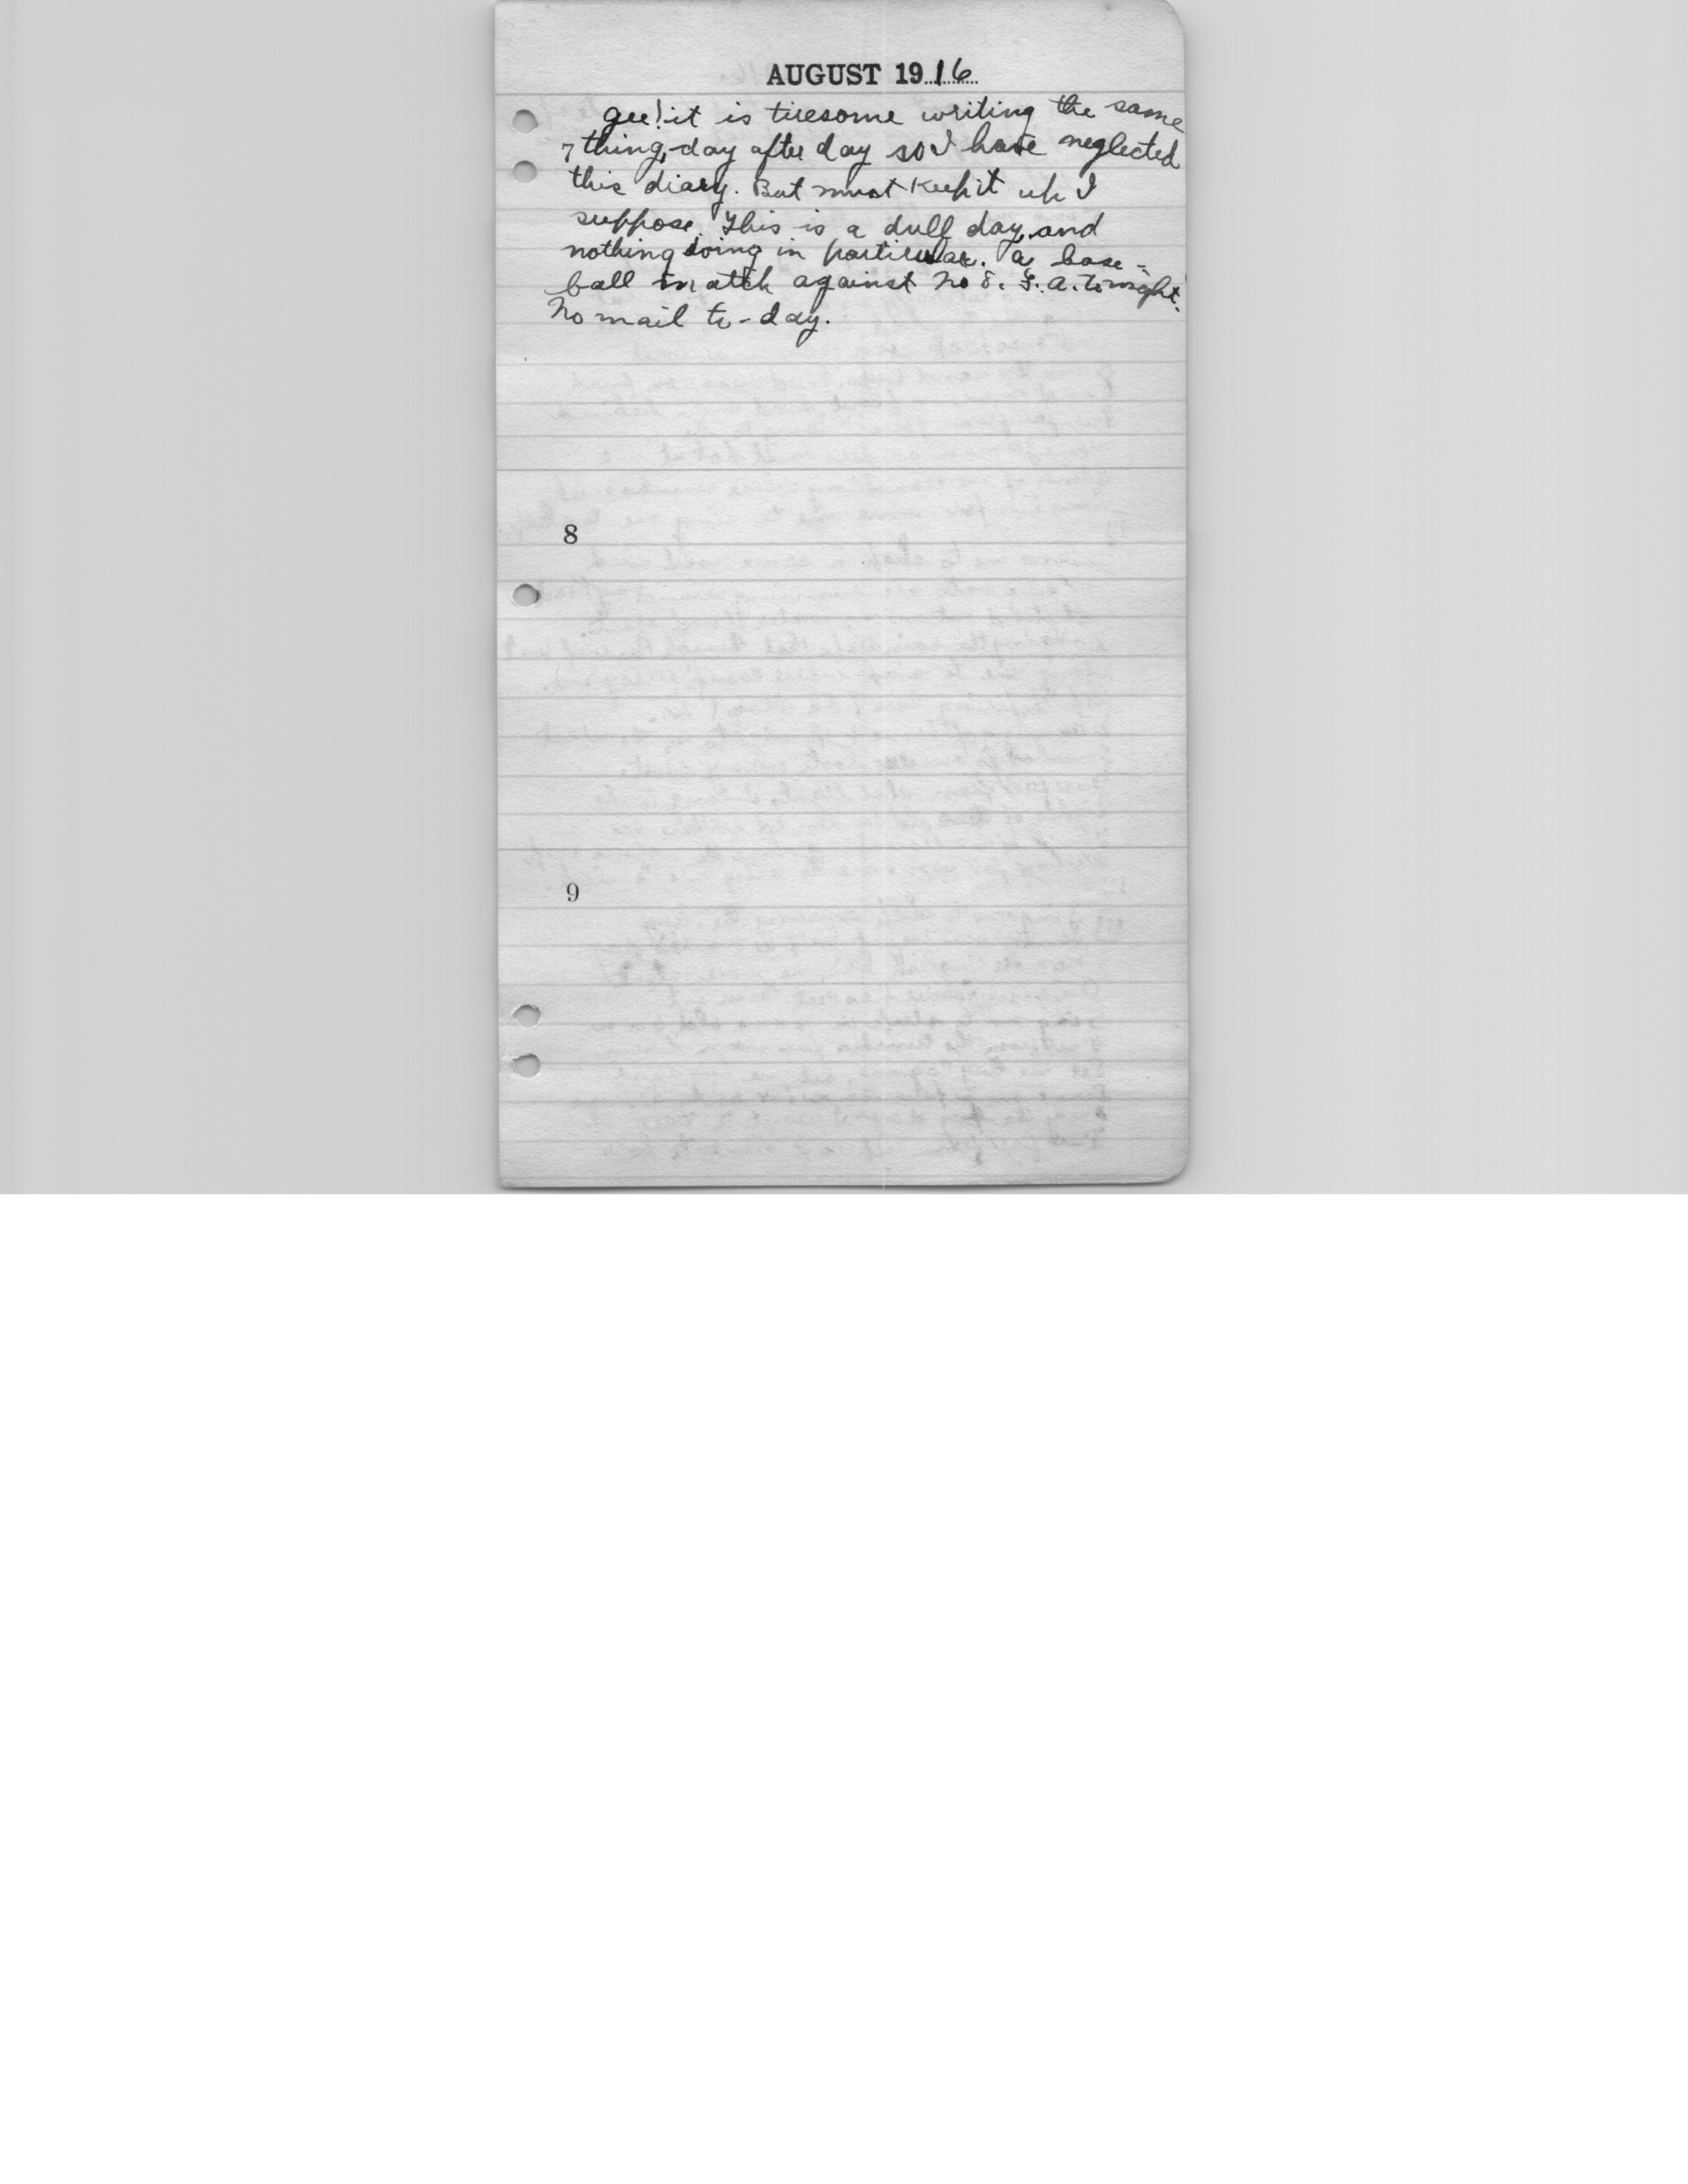 AUGUST 1916
Gee! it is tiresome writing the same
7 thing, day after day so I have neglected
this diary. But must keep it up I
suppose. This is a dull day, and
nothing doing in particular. A base-
ball match against No 8. F. A. tonight.
No mail to-day.
8
9